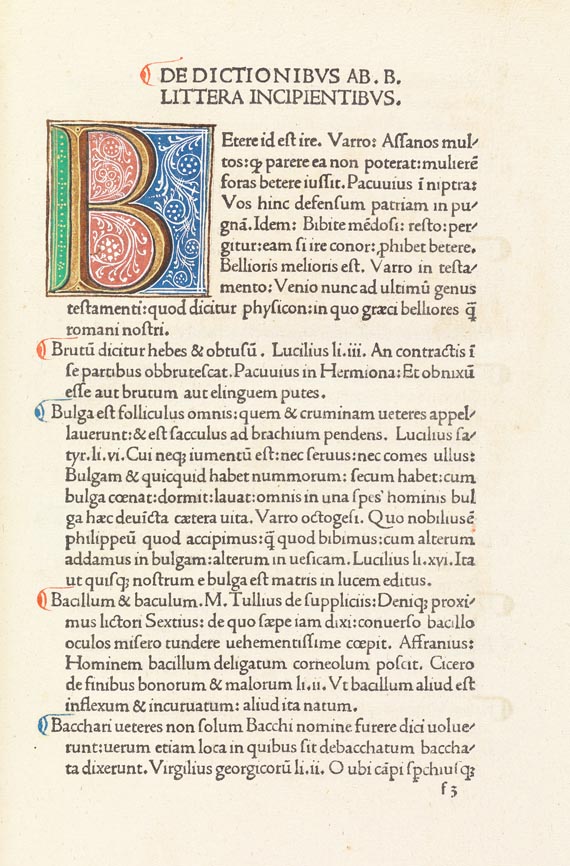 DE DICTIONIBVS AB. B.
LITTERA INCIPIENTIBVS.
BEtere id eſt ire. Varro: Aſſanos mul⸗
tos: ꝙ parere ea non poterat: mulierē
foras betere iuſſit. Pacuuius ī niptra:
Vos hinc defenſum patriam in pu⸗
gnā. Idem: Bibite mēdoſi: reſto: per⸗
gitur: eam ſi ire conor: ꝓhibet betere.
Bellioris melioris eſt. Varro in teſta⸗
mento: Venio nunc ad ultimū genus
teſtamenti: quod dicitur phyſicon: in quo græci belliores q̄̄
romani noſtri.
Brutū dicitur hebes & obtuſū. Lucilius li. iii. An contractis ī
ſe partibus obbruteſcat. Pacuuius in Hermiona: Et obnixū
eſſe aut brutum aut elinguem putes.
Bulga eſt folliculus omnis: quem & cruminam ueteres appel⸗
lauerunt: & eſt ſacculus ad brachium pendens. Lucilius ſa⸗
tyr. li. vi. Cui neqꝫ iumentū eſt: nec ſeruus: nec comes ullus:
Bulgam & quicquid habet nummorum: ſecum habet: cum
bulga cœnat: dormit: lauat: omnis in una ſpes hominis bul
ga hæc deuicta cætera uita. Varro octogeſi. Quo nobiliusē
philippeū quod accipimus: q̄̄ quod bibimus: cum alterum
addamus in bulgam: alterum in ueſicam. Lucilius li. xvi. Ita
ut quiſqꝫ noſtrum e bulga eſt matris in lucem editus.
Bacillum & baculum. M. Tullius de ſuppliciis: Deniqꝫ proxi⸗
mus lictori Sextius: de quo ſæpe iam dixi: conuerſo bacillo
oculos miſero tundere uehementiſſime cœpit. Affranius:
Hominem bacillum deligatum corneolum poſcit. Cicero
de finibus bonorum & malorum li. ii. Vt bacillum aliud eſt
inflexum & incuruatum: aliud ita natum.
Bacchari ueteres non ſolum Bacchi nomine furere dici uolue⸗
runt: uerum etiam loca in quibus ſit debacchatum baccha⸗
ta dixerunt. Virgilius georgicorū li. ii. O ubi cāpi ſpchiuſqꝫ
f 3